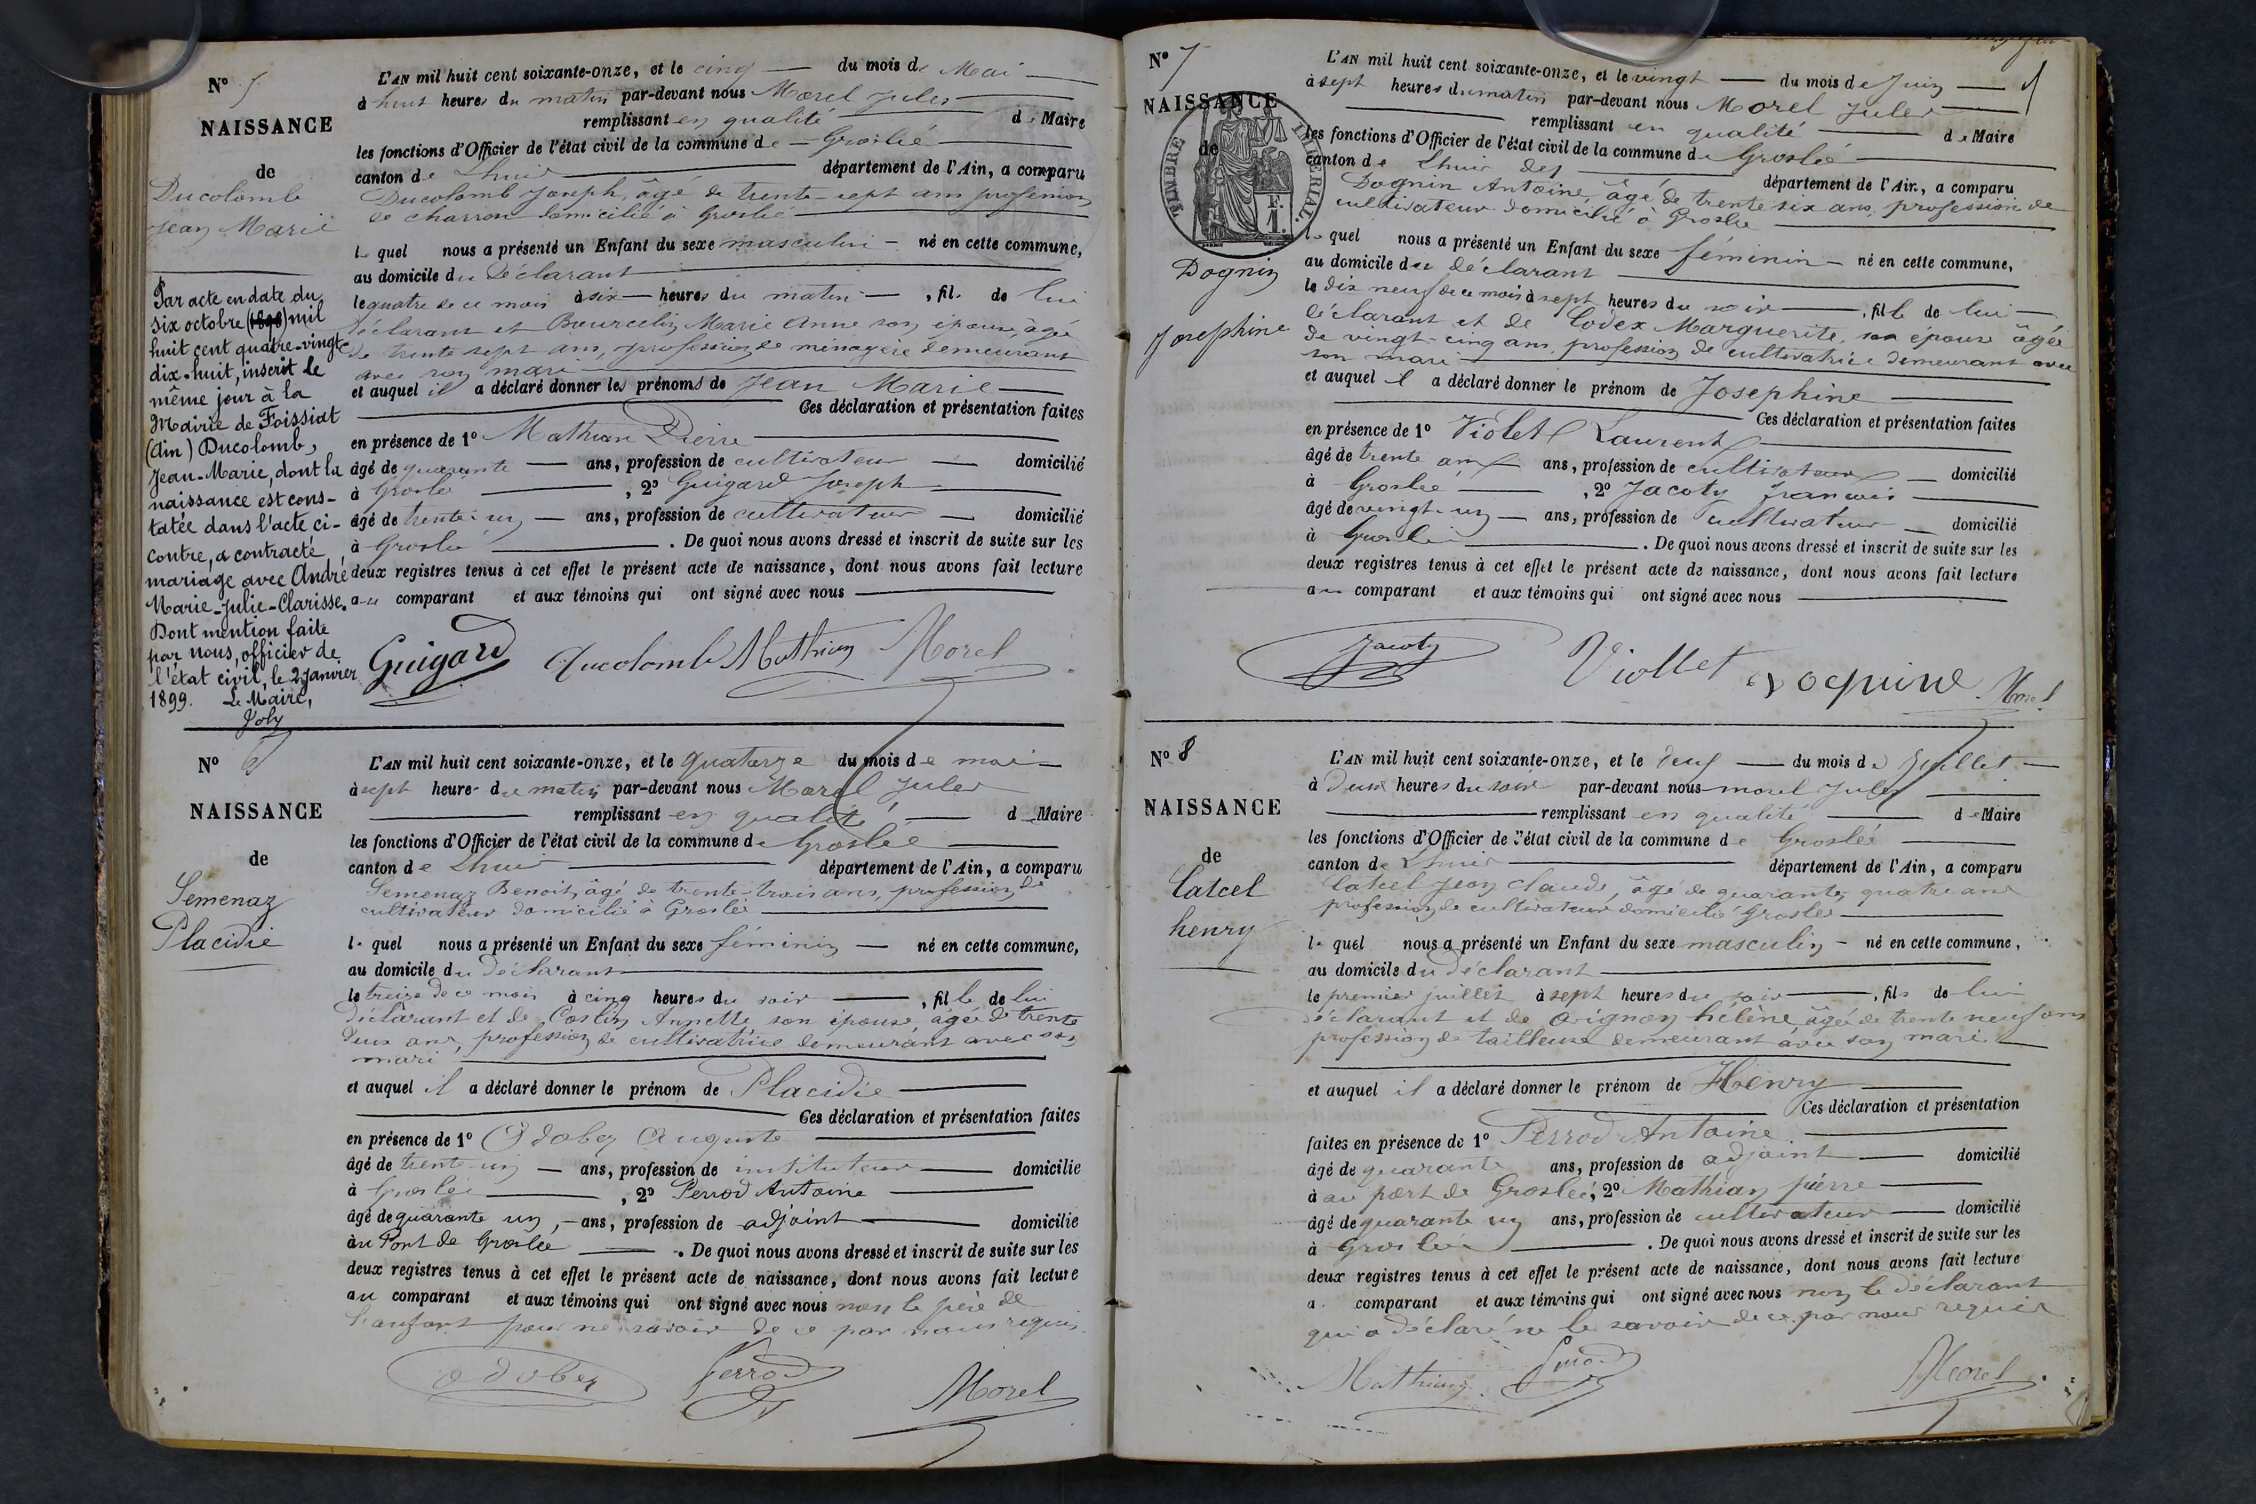 N° 5
NAISSANCE
de
Ducolomb
Jean Marie
Par acte en date du
six octobre (1898) mil
huit cent quatre-vingt-
dix-huit, inscrit le
même jour à la
Mairie de Foissiat
(Ain) Ducolomb,
Jean-Marie, dont la
naissance est cons-
tatée dans l'acte ci-
contre, a contracté
mariage avec André
Marie-Julie-Clarisse.
Dont mention faite
par nous, officier de
l'état civil, le 2 Janvier
1899. Le Maire,
Joly
L'AN mil huit cent soixante-onze, et le cinq du mois de Mai
à huit heures du matin par-devant nous Morel Jules
remplissant en qualité de Maire
les fonctions d'Officier de l'état civil de la commune de Groslée
canton de Lhuis département de l'Ain, a comparu
Ducolomb Joseph, âgé de trente-sept ans profession
de charron domicilié à Groslée
lequel nous a présenté un Enfant du sexe masculin né en cette commune,
au domicile du Déclarant
le quatre de ce mois à six heures du matin, fils de lui
déclarant et Bourcelin Marie Anne son épouse, âgée
de trente sept ans, profession de ménagère demeurant
avec son mari
et auquel il a déclaré donner les prénoms de Jean Marie
Ces déclaration et présentation faites
en présence de 1° Mathian Pierre
âgé de quarante ans, profession de cultivateur domicilié
à Groslée, 2° Guigard Joseph
âgé de trente-un ans, profession de cultivateur domicilié
à Groslée. De quoi nous avons dressé et inscrit de suite sur les
deux registres tenus à cet effet le présent acte de naissance, dont nous avons fait lecture
au comparant et aux témoins qui ont signé avec nous
Guigard Ducolomb Mathian Morel
N° 6
NAISSANCE
de
Semenaz
Placidie
L'AN mil huit cent soixante-onze, et le quatorze du mois de mai
à sept heures du matin par-devant nous Morel Jules
remplissant en qualité de Maire
les fonctions d'Officier de l'état civil de la commune de Groslée
canton de Lhuis département de l'Ain, a comparu
Semenaz Benoit, âgé de trente-trois ans, profession de
cultivateur domicilié à Groslée
lequel nous a présenté un Enfant du sexe féminin né en cette commune,
au domicile du déclarant
le treize de ce mois à cinq heures du soir, fille de lui
déclarant et de Coslin Annette son épouse, âgée de trente
deux ans, profession de cultivatrice demeurant avec son
mari
et auquel il a déclaré donner le prénom de Placidie
Ces déclaration et présentation faites
en présence de 1° Odobez Auguste
âgé de trente-un ans, profession de instituteur domicilié
à Groslée, 2° Perrod Antoine
âgé de quarante un, ans, profession de adjoint domicilié
au Port de Groslée. De quoi nous avons dressé et inscrit de suite sur les
deux registres tenus à cet effet le présent acte de naissance, dont nous avons fait lecture
au comparant et aux témoins qui ont signé avec nous non le père de
l'enfant pour ne savoir de ce par nous requis
Odobez Perrod Morel
N° 7
NAISSANCE
de
TIMBRE IMPÉRIAL
1 F.
Dognin
Josephine
L'AN mil huit cent soixante-onze, et le vingt du mois de Juin
à sept heures du matin par-devant nous Morel Jules
remplissant en qualité de Maire
les fonctions d'Officier de l'état civil de la commune de Groslée
canton de Lhuis département de l'Ain, a comparu
Dognin Antoine, âgé de trente six ans, profession de
cultivateur domicilié à Groslée
lequel nous a présenté un Enfant du sexe féminin né en cette commune,
au domicile du déclarant
le dix neuf de ce mois à sept heures du soir, fille de lui
déclarant et de Codex Marguerite, son épouse âgée
de vingt-cinq ans, profession de cultivatrice demeurant avec
son mari
et auquel il a déclaré donner le prénom de Josephine
Ces déclaration et présentation faites
en présence de 1° Violet Laurent
âgé de trente ans ans, profession de cultivateur domicilié
à Groslée, 2° Jacoty francois
âgé de vingt-un ans, profession de cultivateur domicilié
à Groslée. De quoi nous avons dressé et inscrit de suite sur les
deux registres tenus à cet effet le présent acte de naissance, dont nous avons fait lecture
au comparant et aux témoins qui ont signé avec nous
Jacoty Viollet Morel
N° 8
NAISSANCE
de
Catcel
henry
L'AN mil huit cent soixante-onze, et le deux du mois de Juillet
à Deux heures du soir par-devant nous morel Jules
remplissant en qualité de Maire
les fonctions d'Officier de l'état civil de la commune de Groslée
canton de Lhuis département de l'Ain, a comparu
Catcel Jean Claude, âgé de quarante, quatre ans
profession de cultivateur domicilié Groslée
lequel nous a présenté un Enfant du sexe masculin né en cette commune,
au domicile du déclarant
le premier juillet à sept heures du soir, fils de lui
déclarant et de Orignon hélène, âgée de trente neuf ans
profession de tailleuse demeurant avec son mari
et auquel il a déclaré donner le prénom de Henry
Ces déclaration et présentation
faites en présence de 1° Perrod Antoine
âgé de quarante ans, profession de adjoint domicilié
à au port de Groslée, 2° Mathian pierre
âgé de quarante un ans, profession de cultivateur domicilié
à Groslée. De quoi nous avons dressé et inscrit de suite sur les
deux registres tenus à cet effet le présent acte de naissance, dont nous avons fait lecture
a comparant et aux témoins qui ont signé avec nous non le déclarant
qui a déclaré ne le savoir de ce par nous requis
Mathian Perrod Morel